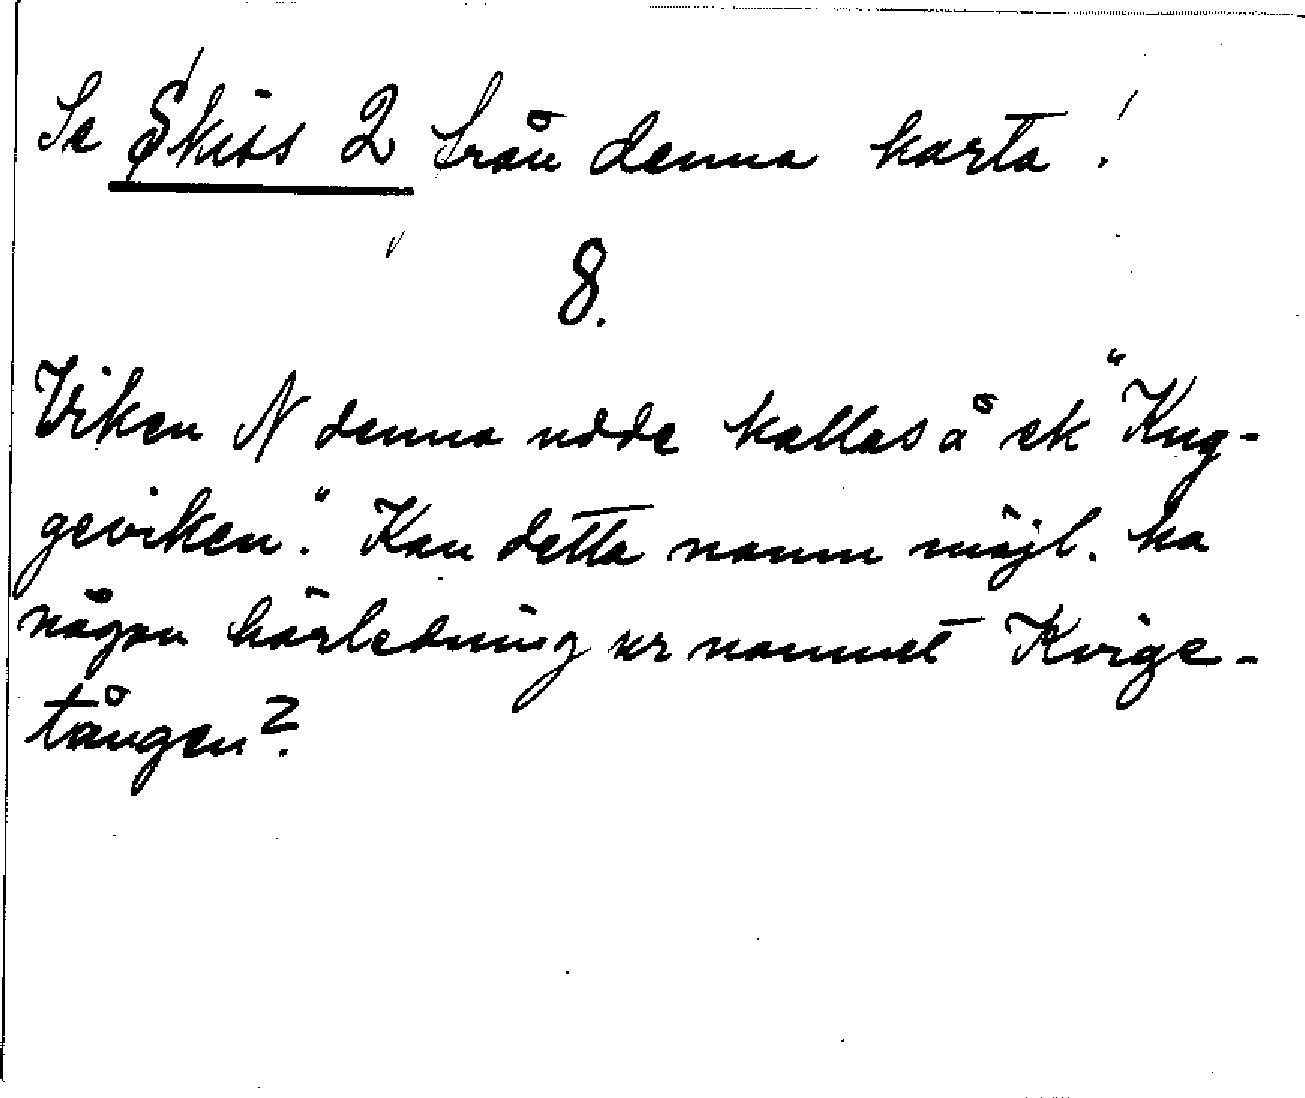 Se Skiss 2 från denna karta!
8.
Viken N denna udde kallas å ek "Kug-
geviken." Kan detta namn möjl. ha
någon härledning ur namnet Kvige-
tången?